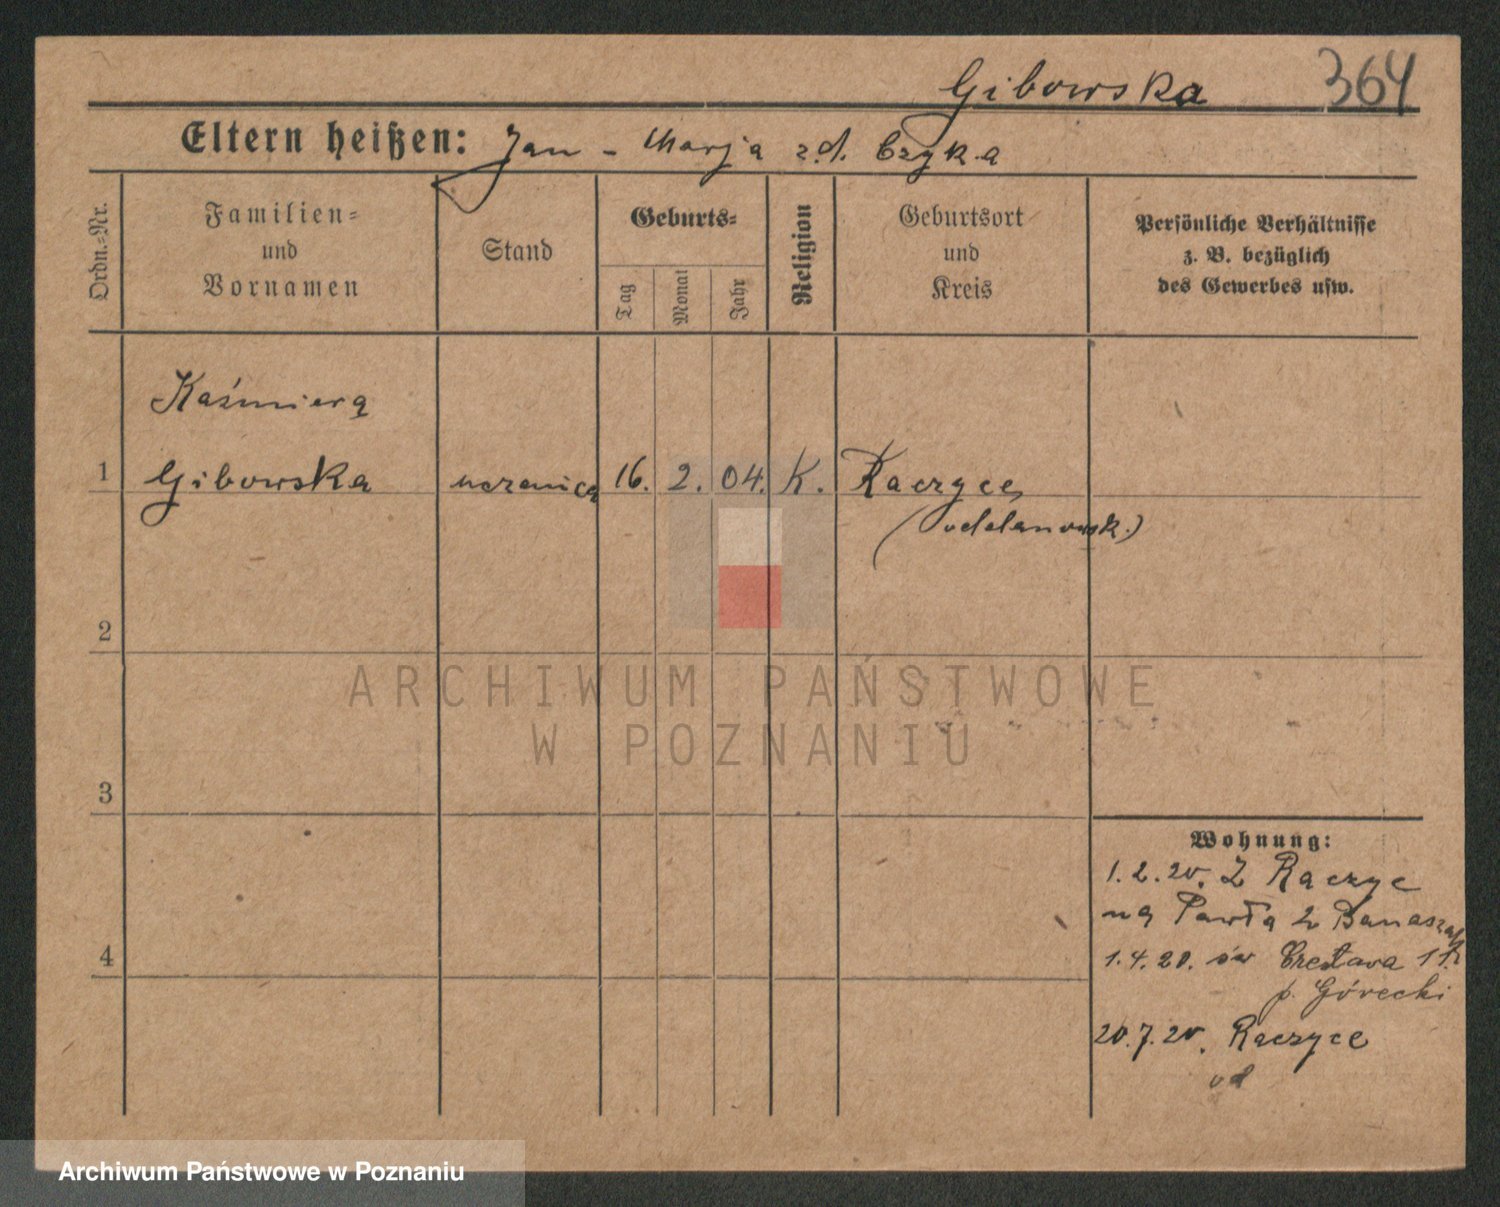 Gibowska 364
Eltern heißen: Jan - Marja z d. Czyka
Ordn.-Nr.
Familien-
und
Vornamen
Stand
Geburts-
Tag
Monat
Jahr
Religion
Geburtsort
und
Kreis
Persönliche Verhältnisse
z. B. bezüglich
des Gewerbes usw.
Kaźmiera
1 Gibowska uczenica 16. 2. 04. K. Raczyce
(odolanowsk.)
2
ARCHIWUM PAŃSTWOWE
W POZNANIU
3
Wohnung:
1.2.20. Z Raczyc
na Pawła 2 Banaszak
4
1.4.20. św Czesława 11
p. Górecki
20.7.20. Raczyce
od
Archiwum Państwowe w Poznaniu